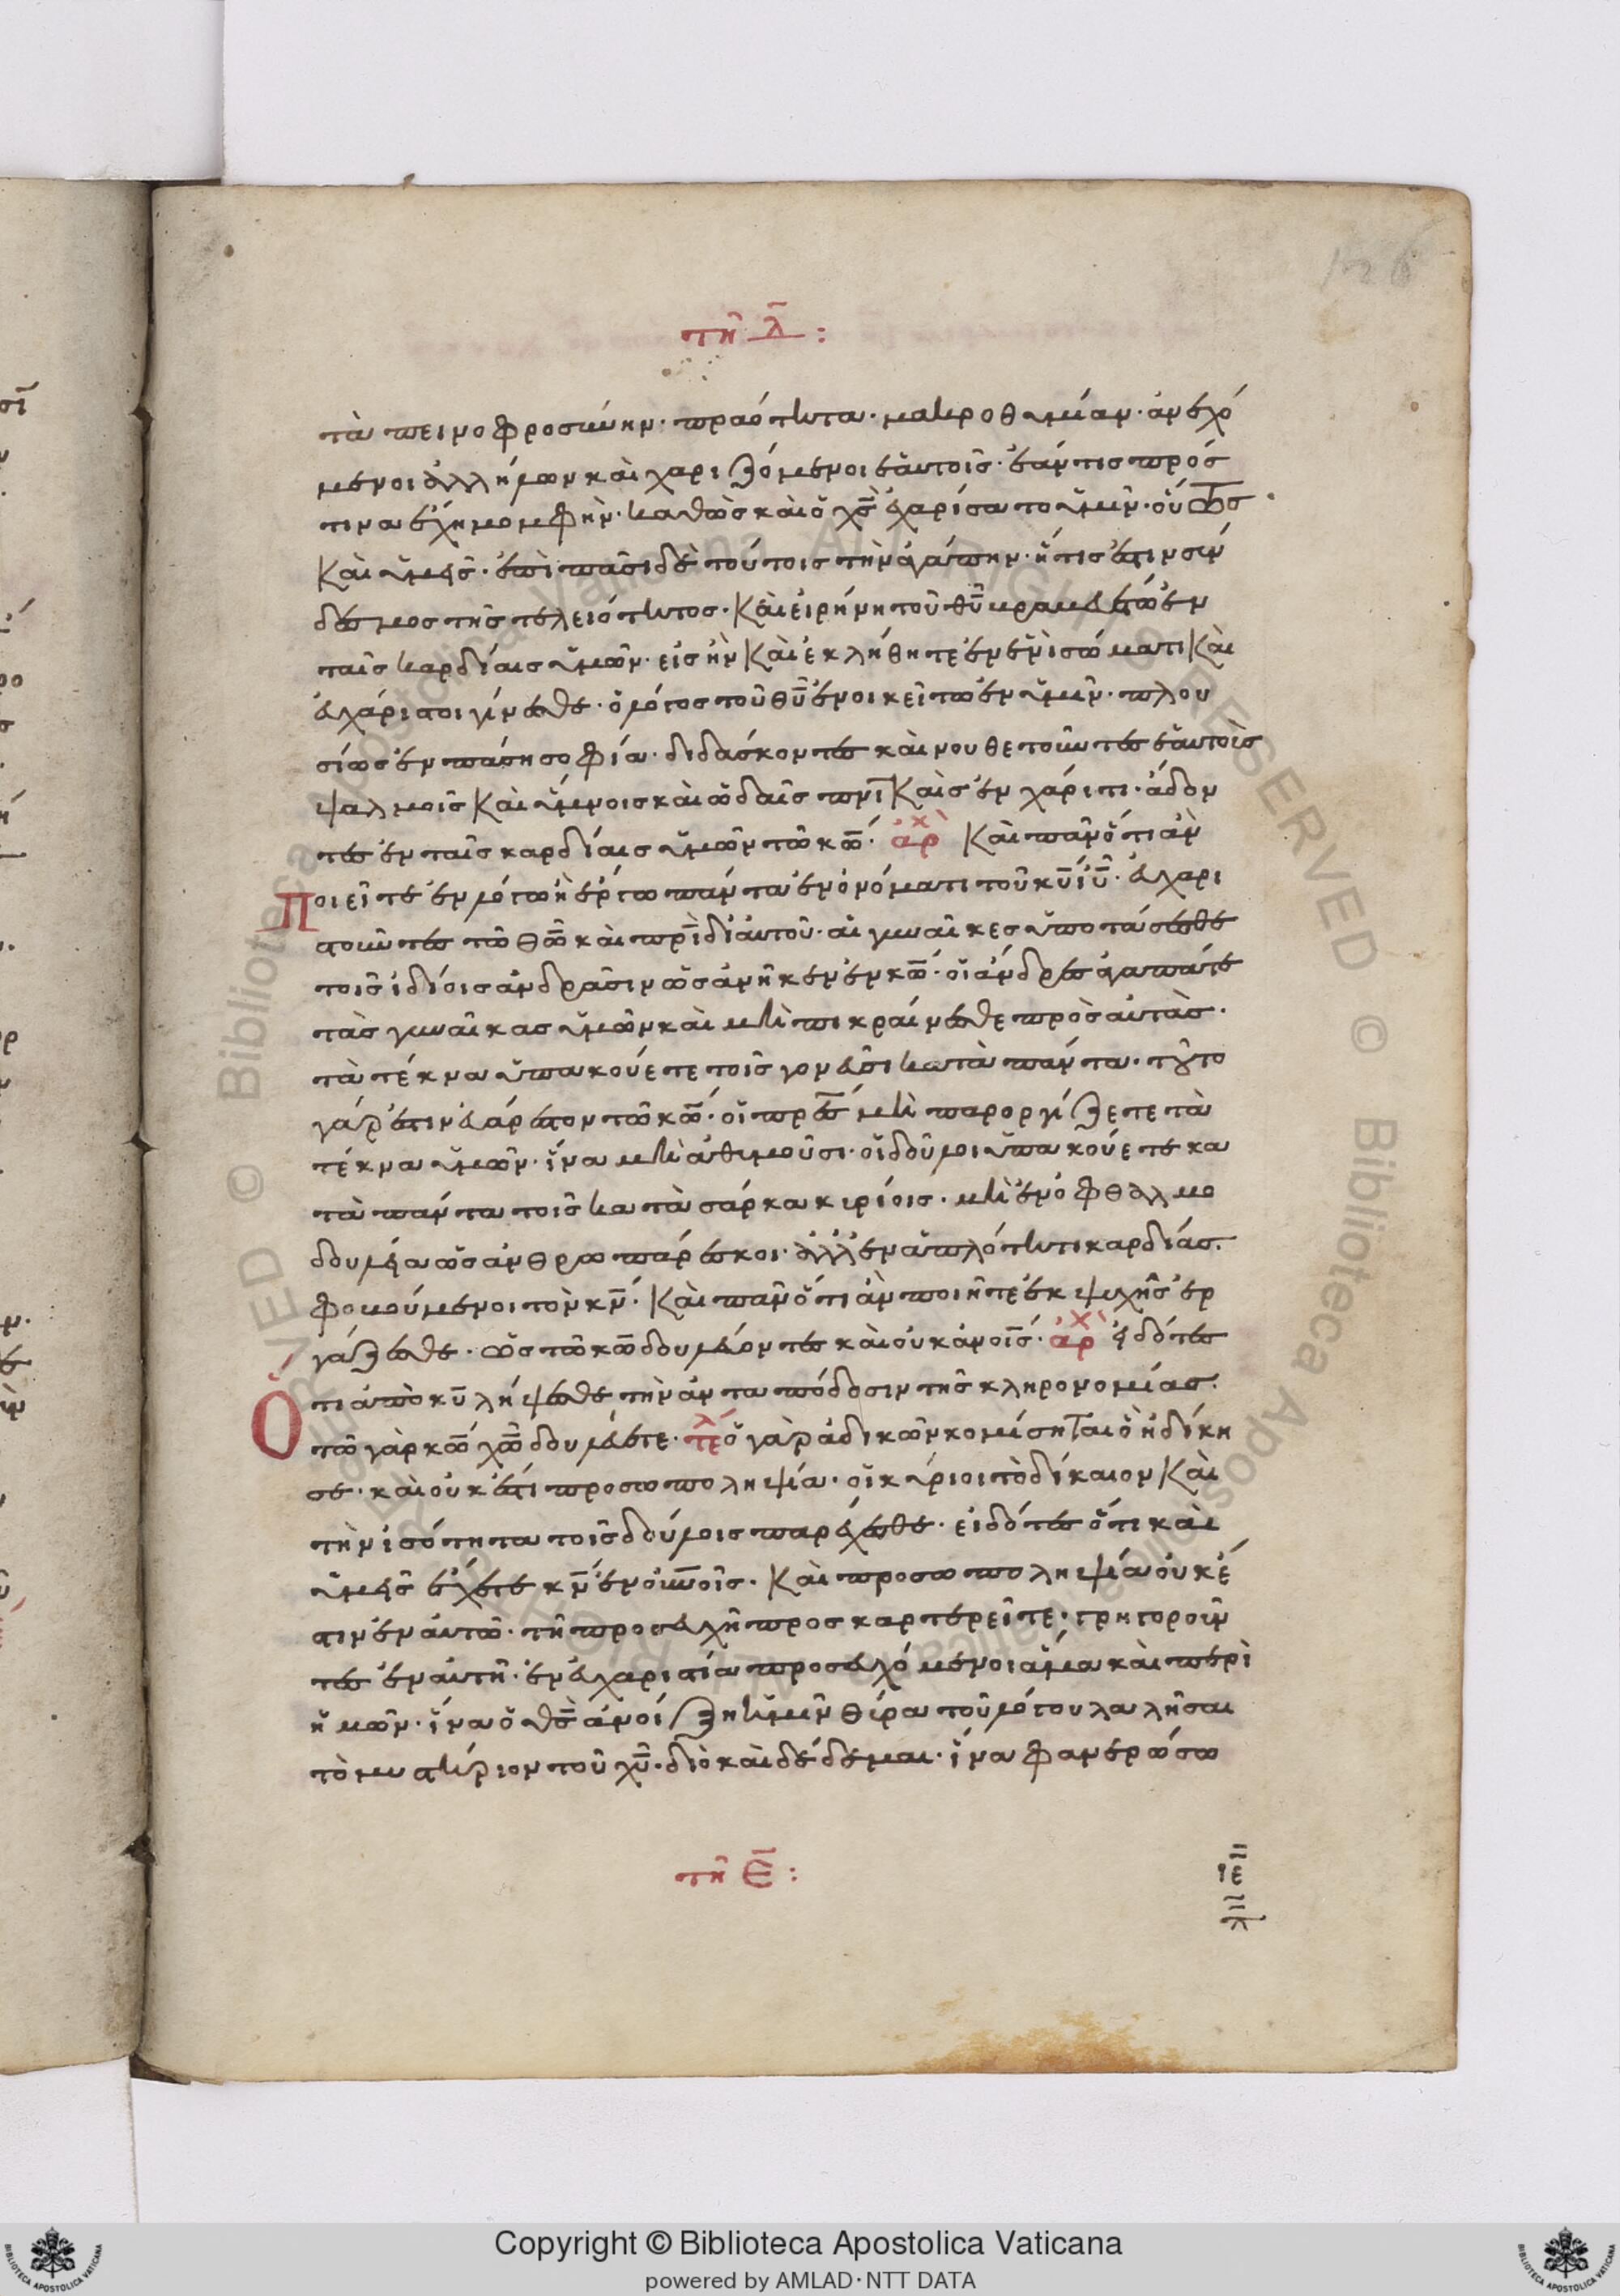 τῆ δ̄ :
ταπεινοφροσύνην· πραότητα· μακροθυμίαν· ἀνεχό
μενοι ἀλλήλων καὶ χαριζόμενοι ἑαυτοῖς· ἐάν τις πρός
τινα ἔχη μομφήν· καθὼς καὶ ὁ χ̅ς̅ ἐχαρίσατο ὑμῖν· οὕτως
καὶ ὑμεῖς· ἐπὶ πᾶσι δὲ τούτοις τὴν ἀγάπην· ἥτις ἐστιν σύν
δεσμος τῆς τελειότητος· καὶ εἰρήνη τοῦ θ̅υ̅ βραβευέτω ἐν
ταῖς καρδίαις ὑμῶν· εἰς ἣν καὶ ἐκλήθητε ἐν ἑνὶ σώματι καὶ
εὐχάριστοι γίνεσθε· ὁ λόγος τοῦ θ̅υ̅ ἐνοικείτω ἐν ὑμῖν· πλου
σίως ἐν πάση σοφία· διδάσκοντες καὶ νουθετοῦντες ἑαυτοὺς
ψαλμοῖς καὶ ὕμνοις καὶ ὠδαῖς πν̅ι̅καῖς ἐν χάριτι· ἄδον
τες ἐν ταῖς καρδίαις ὑμῶν τῶ κ̅ω̅· ἀρχ καὶ πᾶν ὅτι ἂν
Ποιεῖτε ἐν λόγω ἢ ἔργω πάντα ἐν ὀνόματι τοῦ κ̅υ̅ ἰ̅υ̅· εὐχαρι
στοῦντες τῶ θ̅ω̅ καὶ πρ̅ι̅ δι᾽ αὐτοῦ· αἱ γυναῖκες ὑποτάσεσθε
τοῖς ἰδίοις ἀνδράσιν ὡς ἀνῆκεν ἐν κ̅ω̅· οἱ ἄνδρες ἀγαπᾶτε
τὰς γυναῖκας ὑμῶν καὶ μὴ πικραίνεσθε πρὸς αὐτάς·
τὰ τέκνα ὑπακούετε τοῖς γονεῦσι κατὰ πάντα· τοῦτο
γάρ ἐστιν εὐάρεστον τῶ κ̅ω̅· οἱ πρ̅ε̅ς̅ μὴ παροργίζετε τὰ
τέκνα ὑμῶν· ἵνα μὴ ἀθυμοῦσι· οἱ δοῦλοι ὑπακούετε κα
τὰ πάντα τοῖς κατὰ σάρκα κυρίοις· μὴ ἐν ὀφθαλμο
δουλεία ὡς ἀνθρωπάρεσκοι· ἀλλ᾽ ἐν ἁπλότητι καρδίας·
φοβούμενοι τὸν κ̅ν̅· καὶ πᾶν ὅτι ἂν ποιῆτε ἐκ ψυχῆς ἐρ
γάζεσθε· ὡς τῶ κ̅ω̅ δουλεύοντες καὶ οὐκ ἀν̅ο̅ις· ἀρχ εἰδότες
Ὅτι ἀπὸ κ̅υ̅ λήψεσθε τὴν ἀνταπόδοσιν τῆς κληρονομίας·
τῶ γὰρ κ̅ω̅ χ̅ω̅ δουλεύετε· τέλ ὁ γὰρ ἀδικῶν κομίσηται ὃ ἠδίκη
σε· καὶ οὐκ ἔστι προσωποληψία· οἱ κύριοι τὸ δίκαιον καὶ
τὴν ἰσότητα τοῖς δούλοις παρέχεσθε· εἰδότες ὅτι καὶ
ὑμεῖς ἔχετε κ̅ν̅ ἐν οὐ̅ν̅οῖς· καὶ προσωποληψία οὐκ ἔ
στιν ἐν αὐτῶ· τῆ προσευχῆ προσκαρτερεῖτε· γρηγοροῦν
τες ἐν αὐτῆ· ἐν εὐχαριστία προσευχόμενοι ἅμα καὶ περὶ
ἡμῶν· ἵνα ὁ θ̅ς̅ ἀνοίξη ἡμῖν θύρα τοῦ λόγου λαλῆσαι
τὸ μυστήριον τοῦ χ̅υ̅· διὸ καὶ δέδεμαι· ἵνα φανερώσω
τῆ ε̅ :
ιε̅
λ